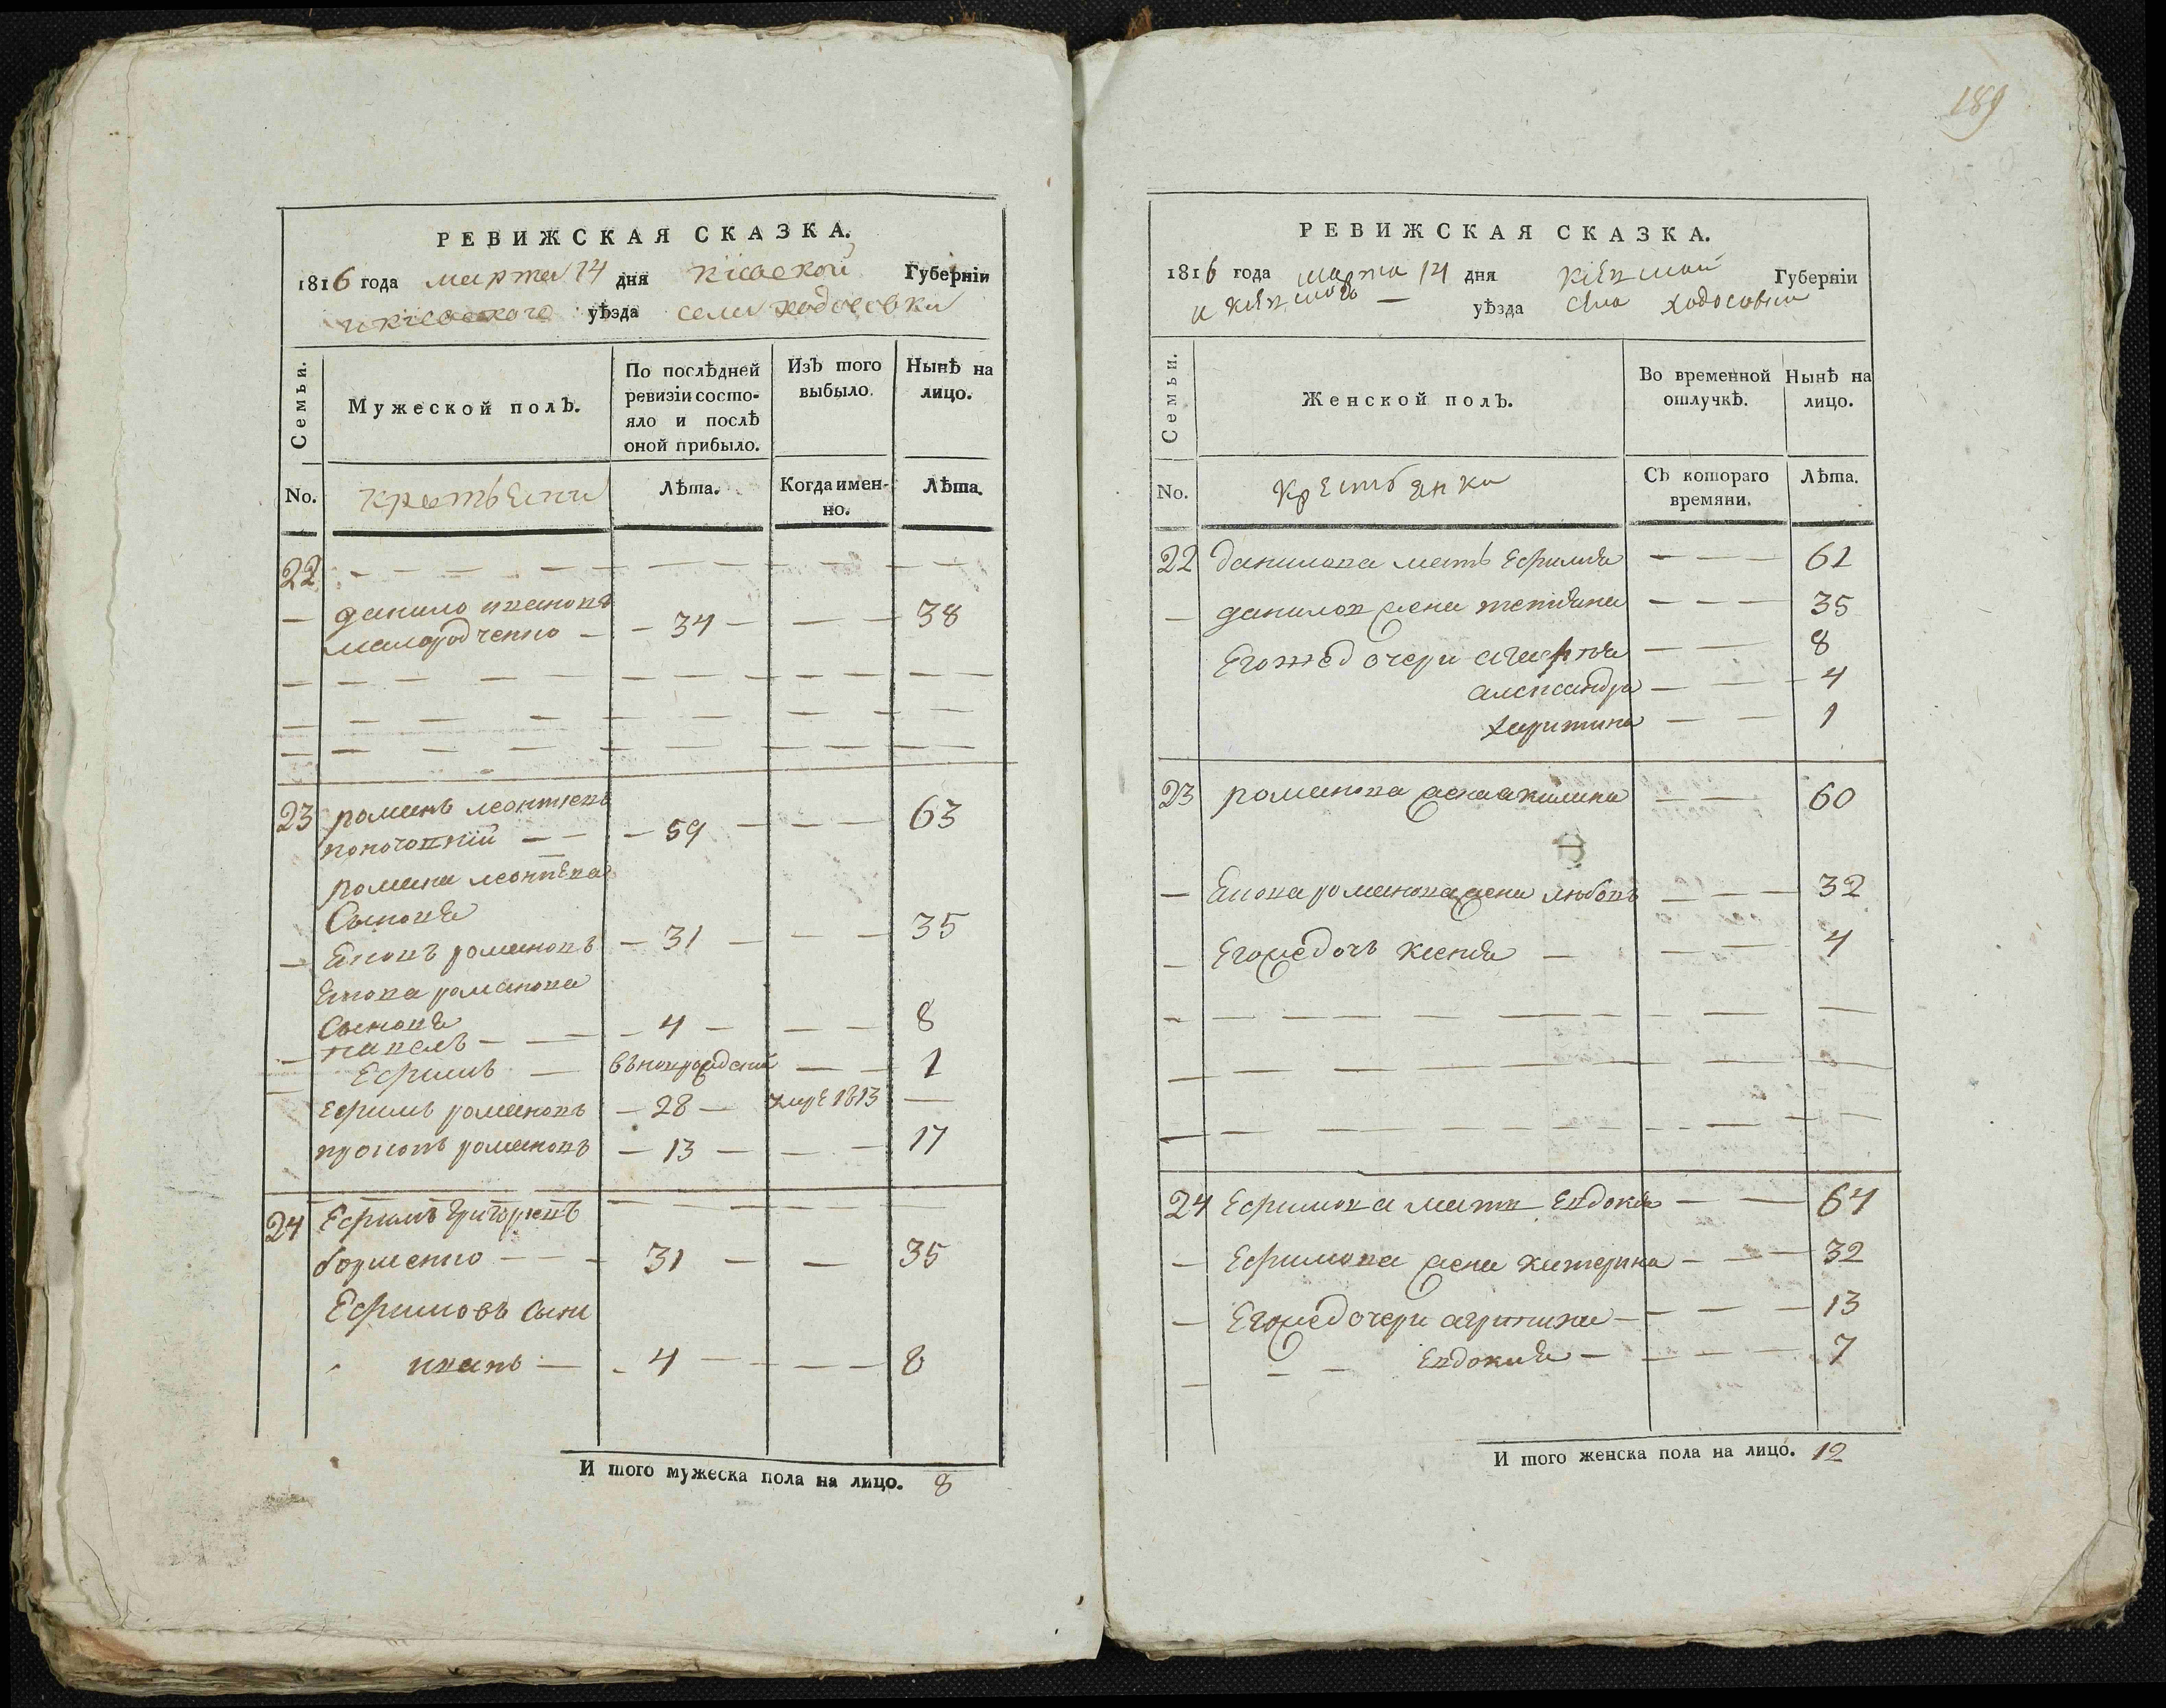 РЕВИЖСКАЯ СКАЗКА.
1816 года марта 14 дня Кіевской Губерніи
и Кіевского уѣзда села Ходосовки
Семьи.
Мужеской полъ.
По послѣдней ревизіи состояло и послѣ оной прибыло.
Изъ того выбыло.
Нынѣ на лицо.
No.
Лѣта.
Когда именно.
Лѣта.
22
данило ивановъ
малородченко — 34 — — — 38
23 романъ леонтіевъ
— 59 — — — 63
романа леонтѣва
Сыновя
романовъ — 31 — — — 35
романова
Сыновя
павелъ — — 4 — — — 8
Ефимъ — вноворожденій — — 1
Ефимъ романовъ — 28 — умре 1813 —
прокопъ романовъ — 13 — — — 17
24 Ефимъ григоріевъ
— 31 — — 35
Ефимовъ сынъ
иванъ — 4 — — — 8
И того мужеска пола на лицо. 8
189
РЕВИЖСКАЯ СКАЗКА.
1816 года марта 14 дня Губерніи
уѣзда села Ходосовки
Семьи.
Женской полъ.
Во временной отлучкѣ.
Нынѣ на лицо.
No.
Крестьянки
Съ котораго времяни.
Лѣта.
22 данилова мать Ефимия — — — 61
данилов жена татияна — — — 35
Его же дочери агафия — — 8
александра — — 4
харитина — — 1
23 романова жена акилина — — 60
романова жена любовъ — — — 32
Его же дочъ ксения — — — 4
24 Ефимова мать Евдокия — — 64
Ефимова жена катерина — — — 32
Его же дочери агрипина — — — 13
Евдокия — — — — 7
И того женска пола на лицо. 12